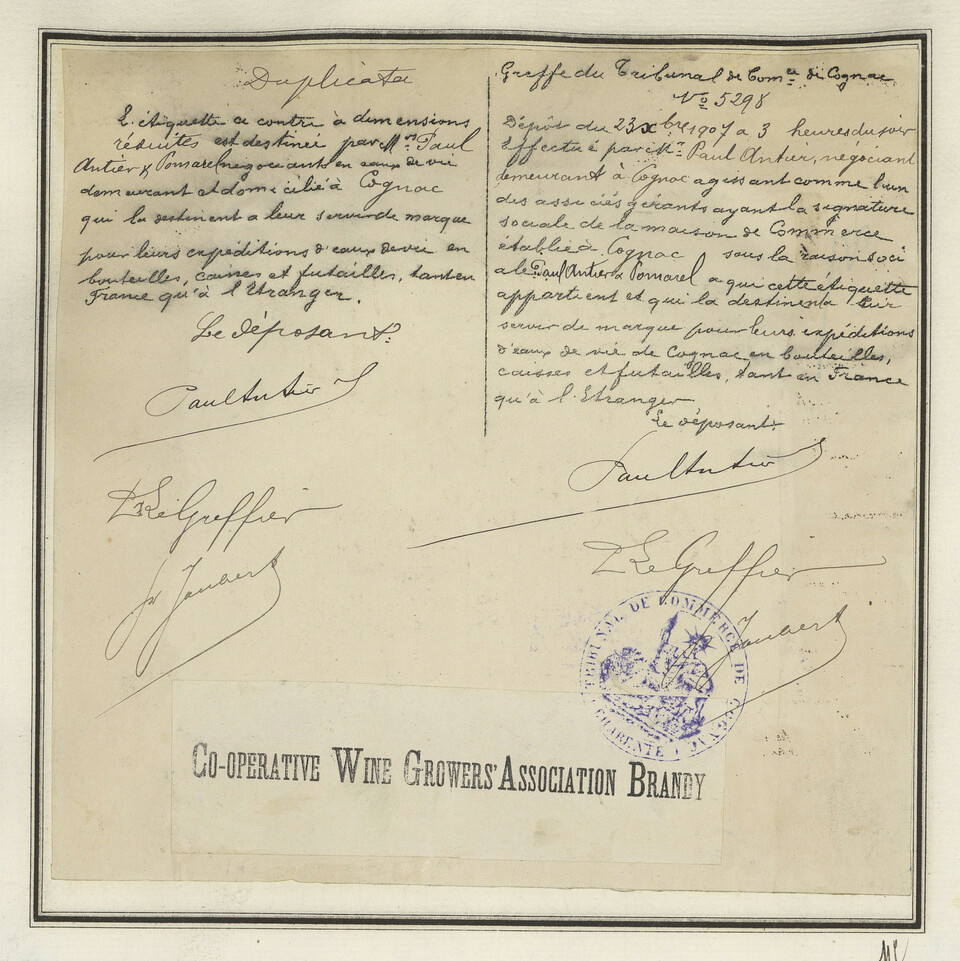 Duplicata
L'étiquette ci contre à dimensions
réduites est destinée par Mrs Paul
Antier & Pomarel négociants en eaux de vie
demeurant et domicilié à Cognac
qui la destinent a leur servir de marque
pour leurs expéditions d'eaux de vie en
bouteilles, caisses et futailles, tant en
France qu'à l'Etranger.
Le déposant:
Paul Antier
Le Greffier
Greffe du Tribunal de Comce de Cognac
No 5298
Dépôt du 23 Xbre 1907 a 3 heures du soir
Effectué par Mr Paul Antier, négociant
demeurant à Cognac agissant comme l'un
des associés gérants ayant la signature
sociale de la maison de Commerce
établie à Cognac sous la raison soci
ale Paul Antier & Pomarel a qui cette étiquette
appartient et qui la destinent a leur
servir de marque pour leurs expéditions
d'eaux de vie de Cognac en bouteilles,
caisses et futailles, tant en France
qu'à l'Etranger
Le déposant:
Paul Antier
Le Greffier
TRIBUNAL DE COMMERCE DE COGNAC
CHARENTE
CO-OPERATIVE WINE GROWERS' ASSOCIATION BRANDY